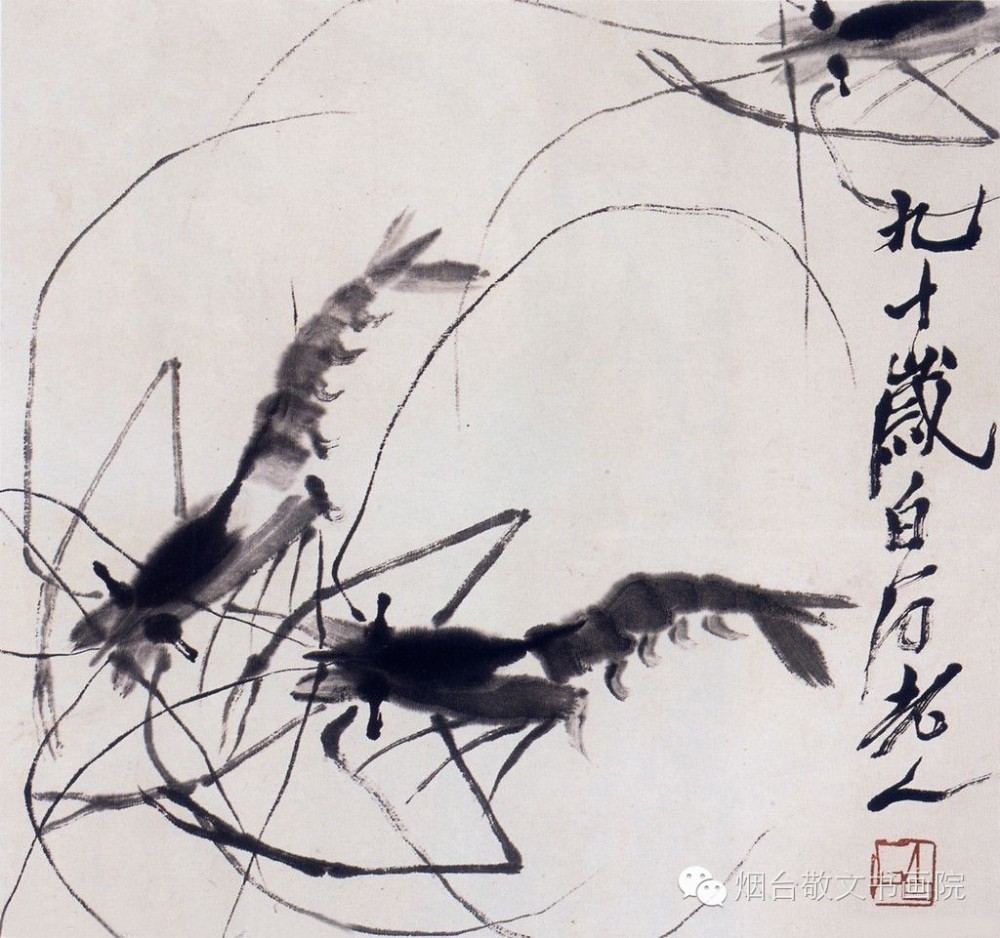 九十歲白石老人
烟台敬文书画院